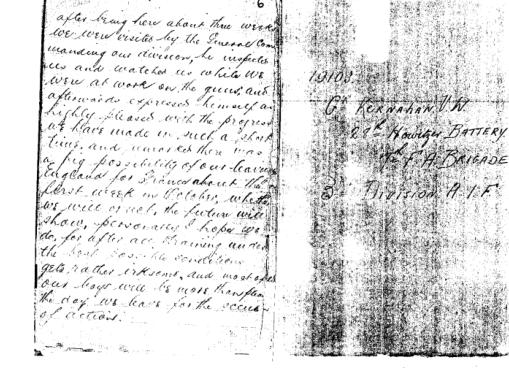 6
after being here about three weeks
we were visited by the General Com
manding our division, he inspected
us and watched us while we
were at work on the guns, and
afterwards expressed himself as
highly pleased with the progress
we have made in such a short
time, and remarked there was
a big possibility of our leaving
England for France about the
first week in October, whether
we will or not, the future will
show, personally I hope we
do, for after all training under
the best possible conditions
gets rather irksome, and most of
our boys will be more than
the day we leave for the scene
of actions.
19103
Gr KERNAHAN. V. W.
27th Howitzer BATTERY
7th F. A. BRIGADE
3rd DIVISION A.I.F